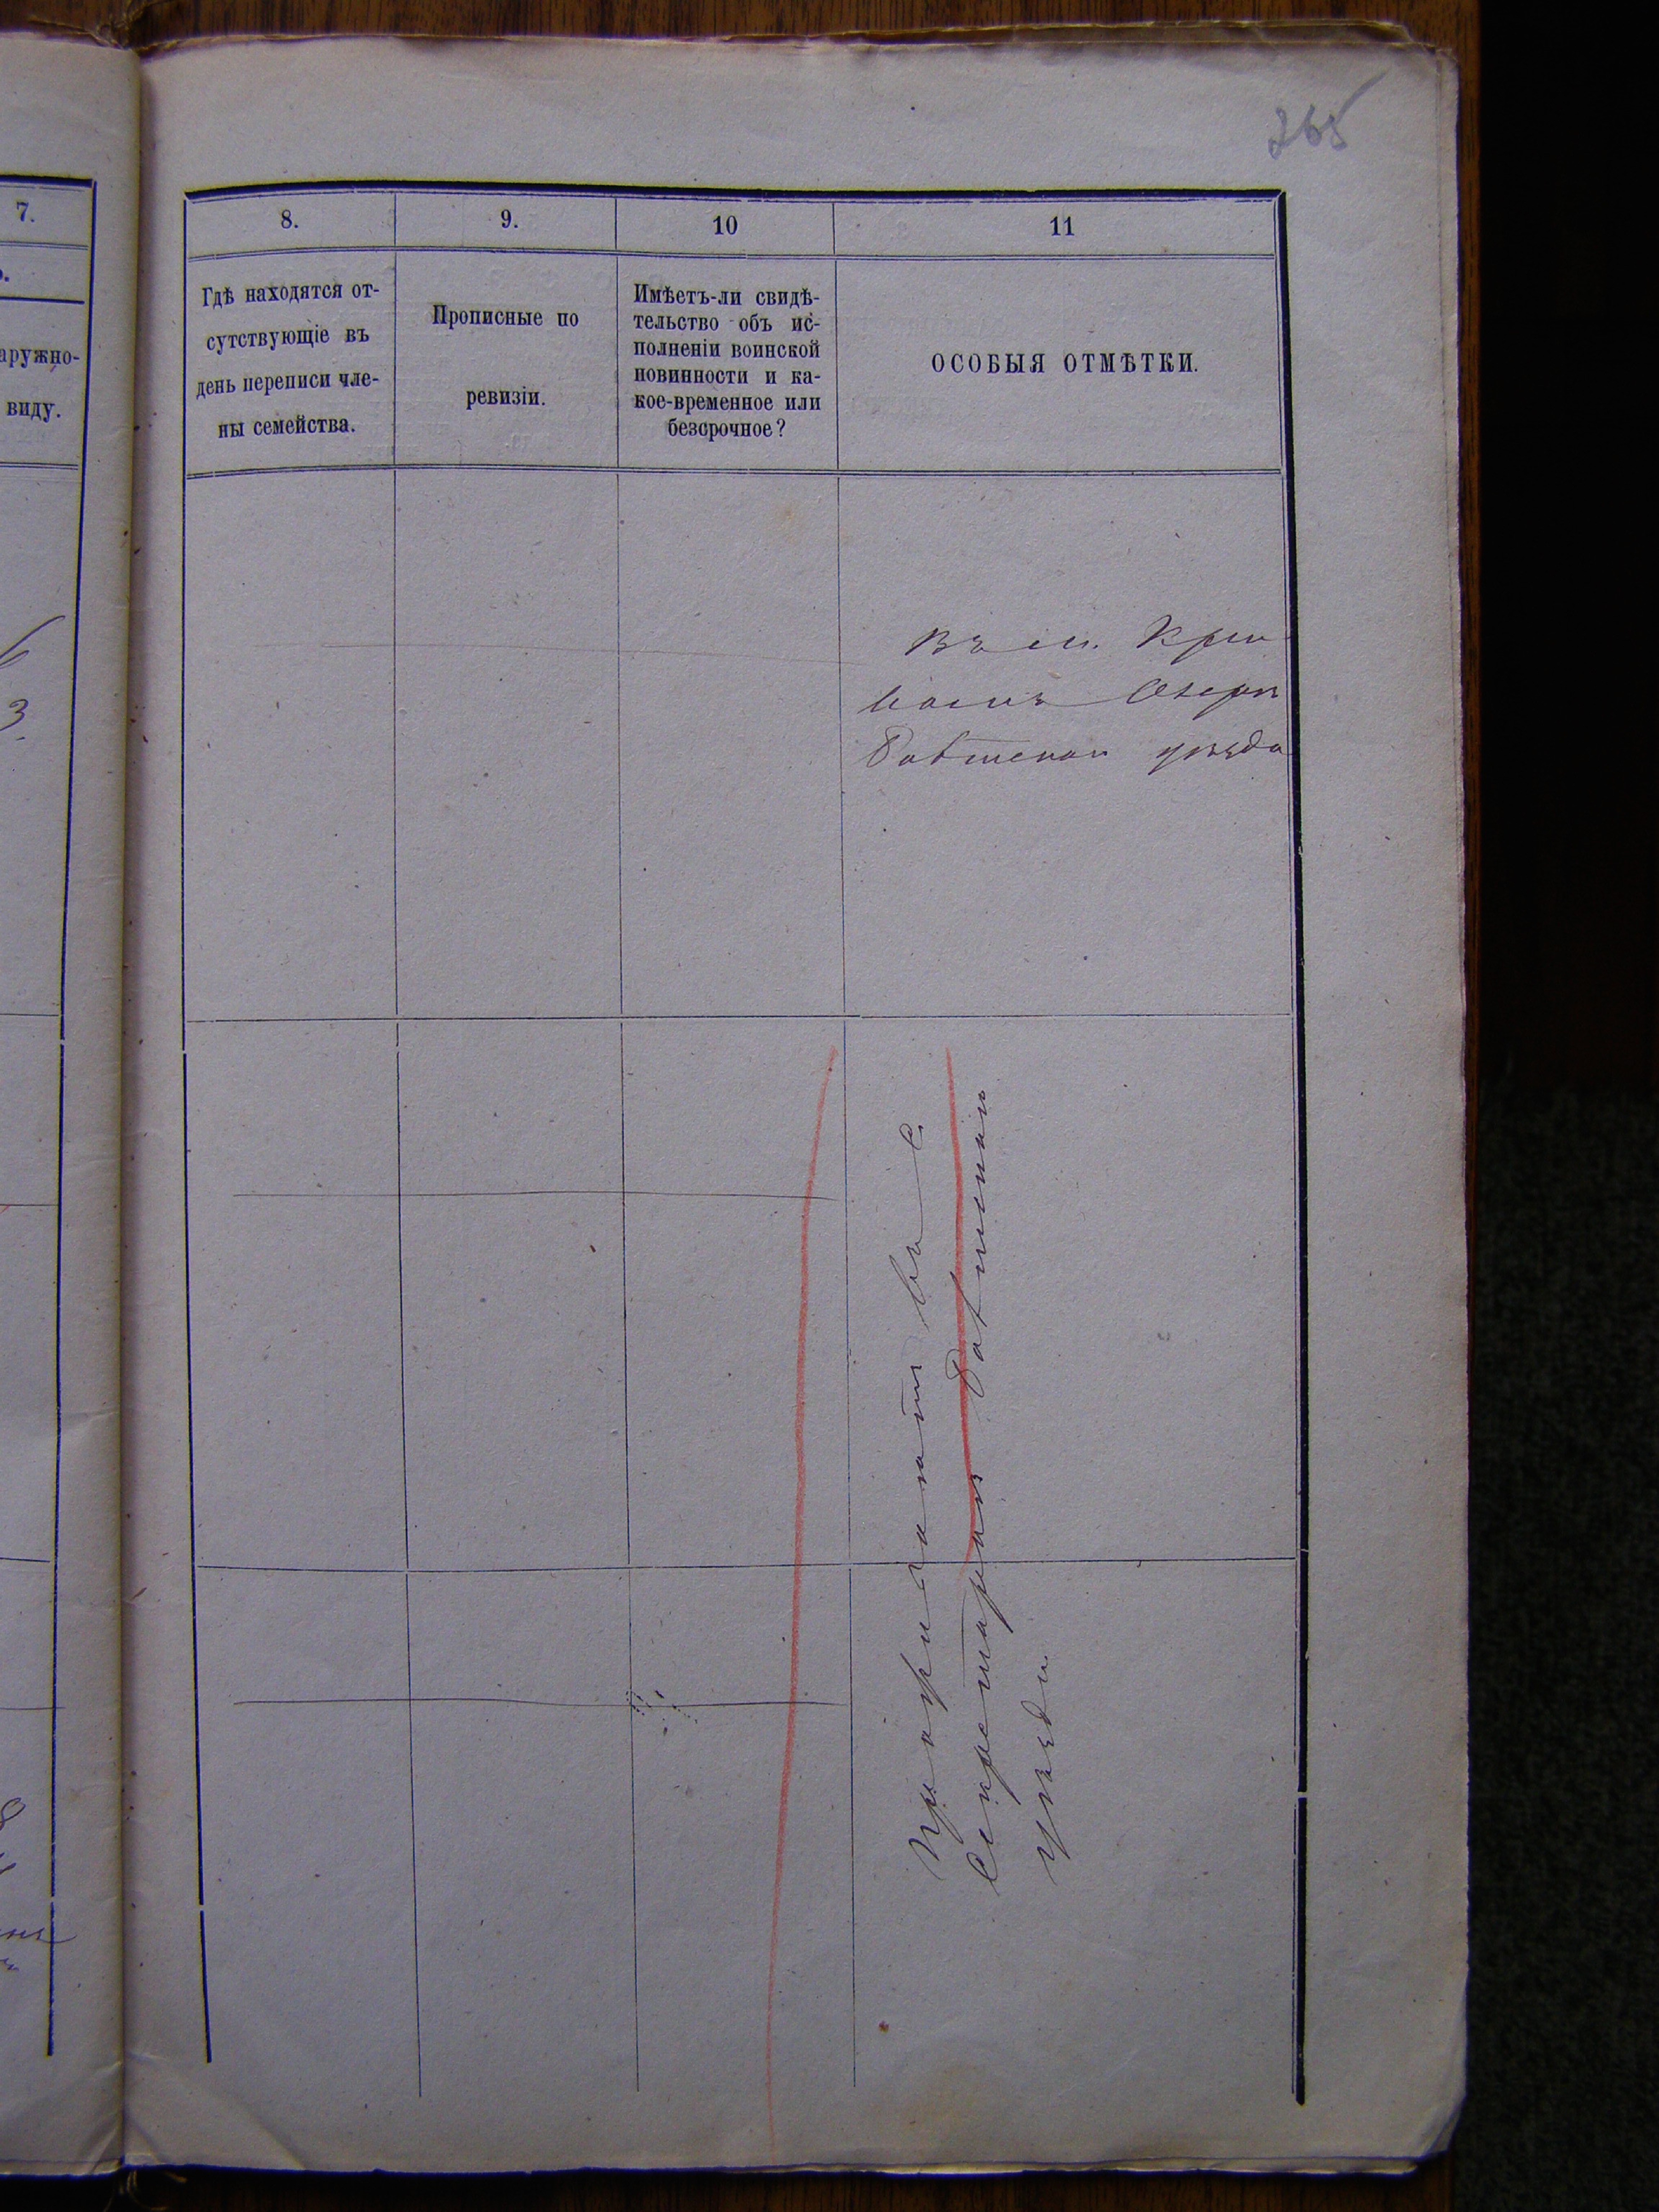 265
7.
8.
9.
10
11
аружно-
виду.
Гдѣ находятся от-
сутствующіе въ
день переписи чле-
ны семейства.
Прописные по
ревизіи.
Имѣетъ-ли свидѣ-
тельство объ ис-
полненіи воинской
повинности и ка-
кое-временное или
безсрочное?
ОСОБЫЯ ОТМѢТКИ.
3
Въ м. Кри
вомъ Озерѣ
Балтскаго уѣзда
въ с
Балтскаго
уѣзда